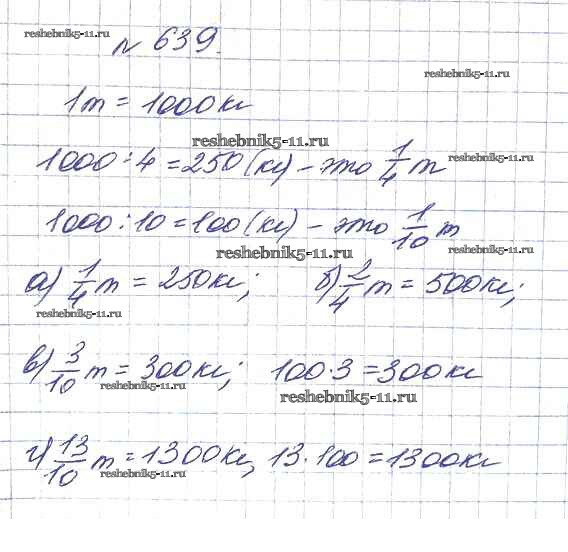 reshebnik5-11.ru
№ 639.
reshebnik5-11.ru
1т = 1000кг
reshebnik5-11.ru
1000:4 = 250 (кг) - это 1/4 т
reshebnik5-11.ru
1000:10 = 100 (кг) - это 1/10 т
reshebnik5-11.ru
reshebnik5-11.ru
а) 1/4 т = 250кг; б) 2/4 т = 500кг;
reshebnik5-11.ru
в) 3/10 т = 300кг; 100·3 = 300кг
reshebnik5-11.ru
reshebnik5-11.ru
г) 13/10 т = 1300кг, 13·100 = 1300кг
reshebnik5-11.ru